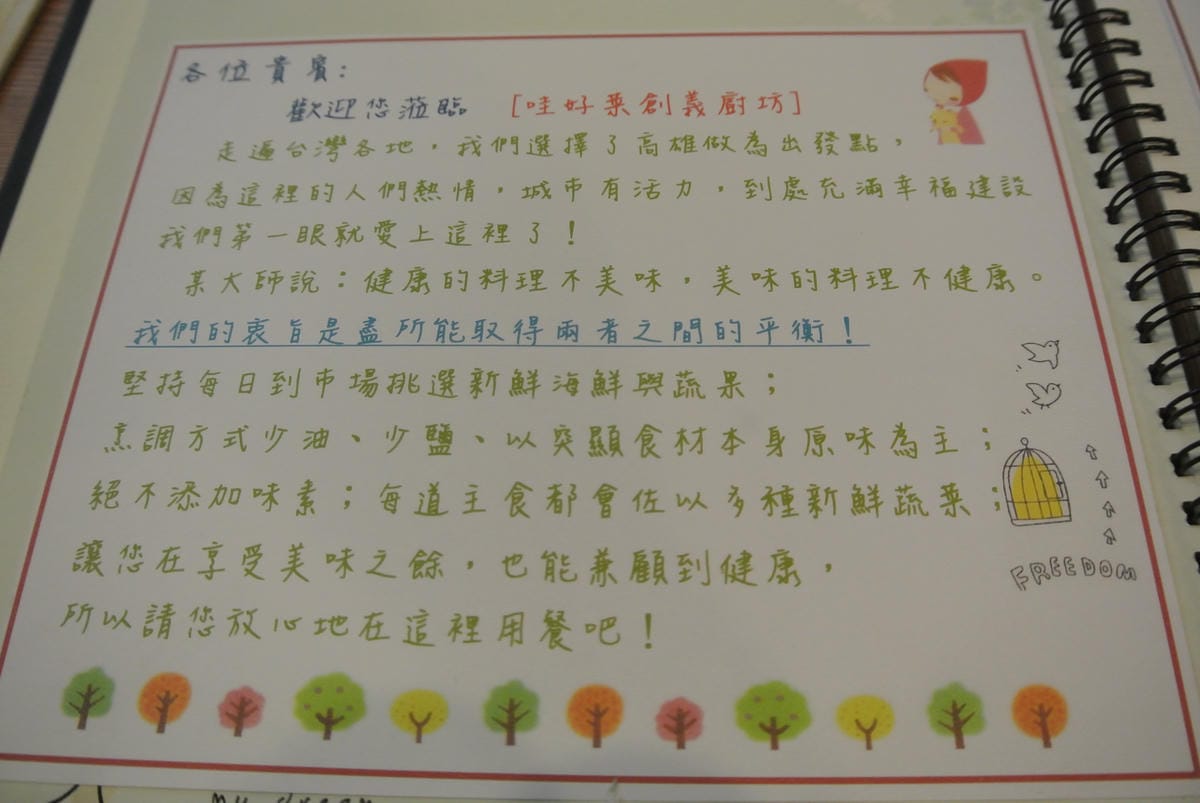 各位貴賓：
歡迎您蒞臨 [哇好菜創義廚坊]
走遍台灣各地，我們選擇了高雄做為出發點，
因為這裡的人們熱情，城市有活力，到處充滿幸福建設
我們第一眼就愛上這裡了！
某大師說：健康的料理不美味，美味的料理不健康。
我們的衷旨是盡所能取得兩者之間的平衡！
堅持每日到市場挑選新鮮海鮮與蔬果；
烹調方式少油、少鹽、以突顯食材本身原味為主；
絕不添加味素；每道主食都會佐以多種新鮮蔬菜；
讓您在享受美味之餘，也能兼顧到健康，
所以請您放心地在這裡用餐吧！
FREEDOM